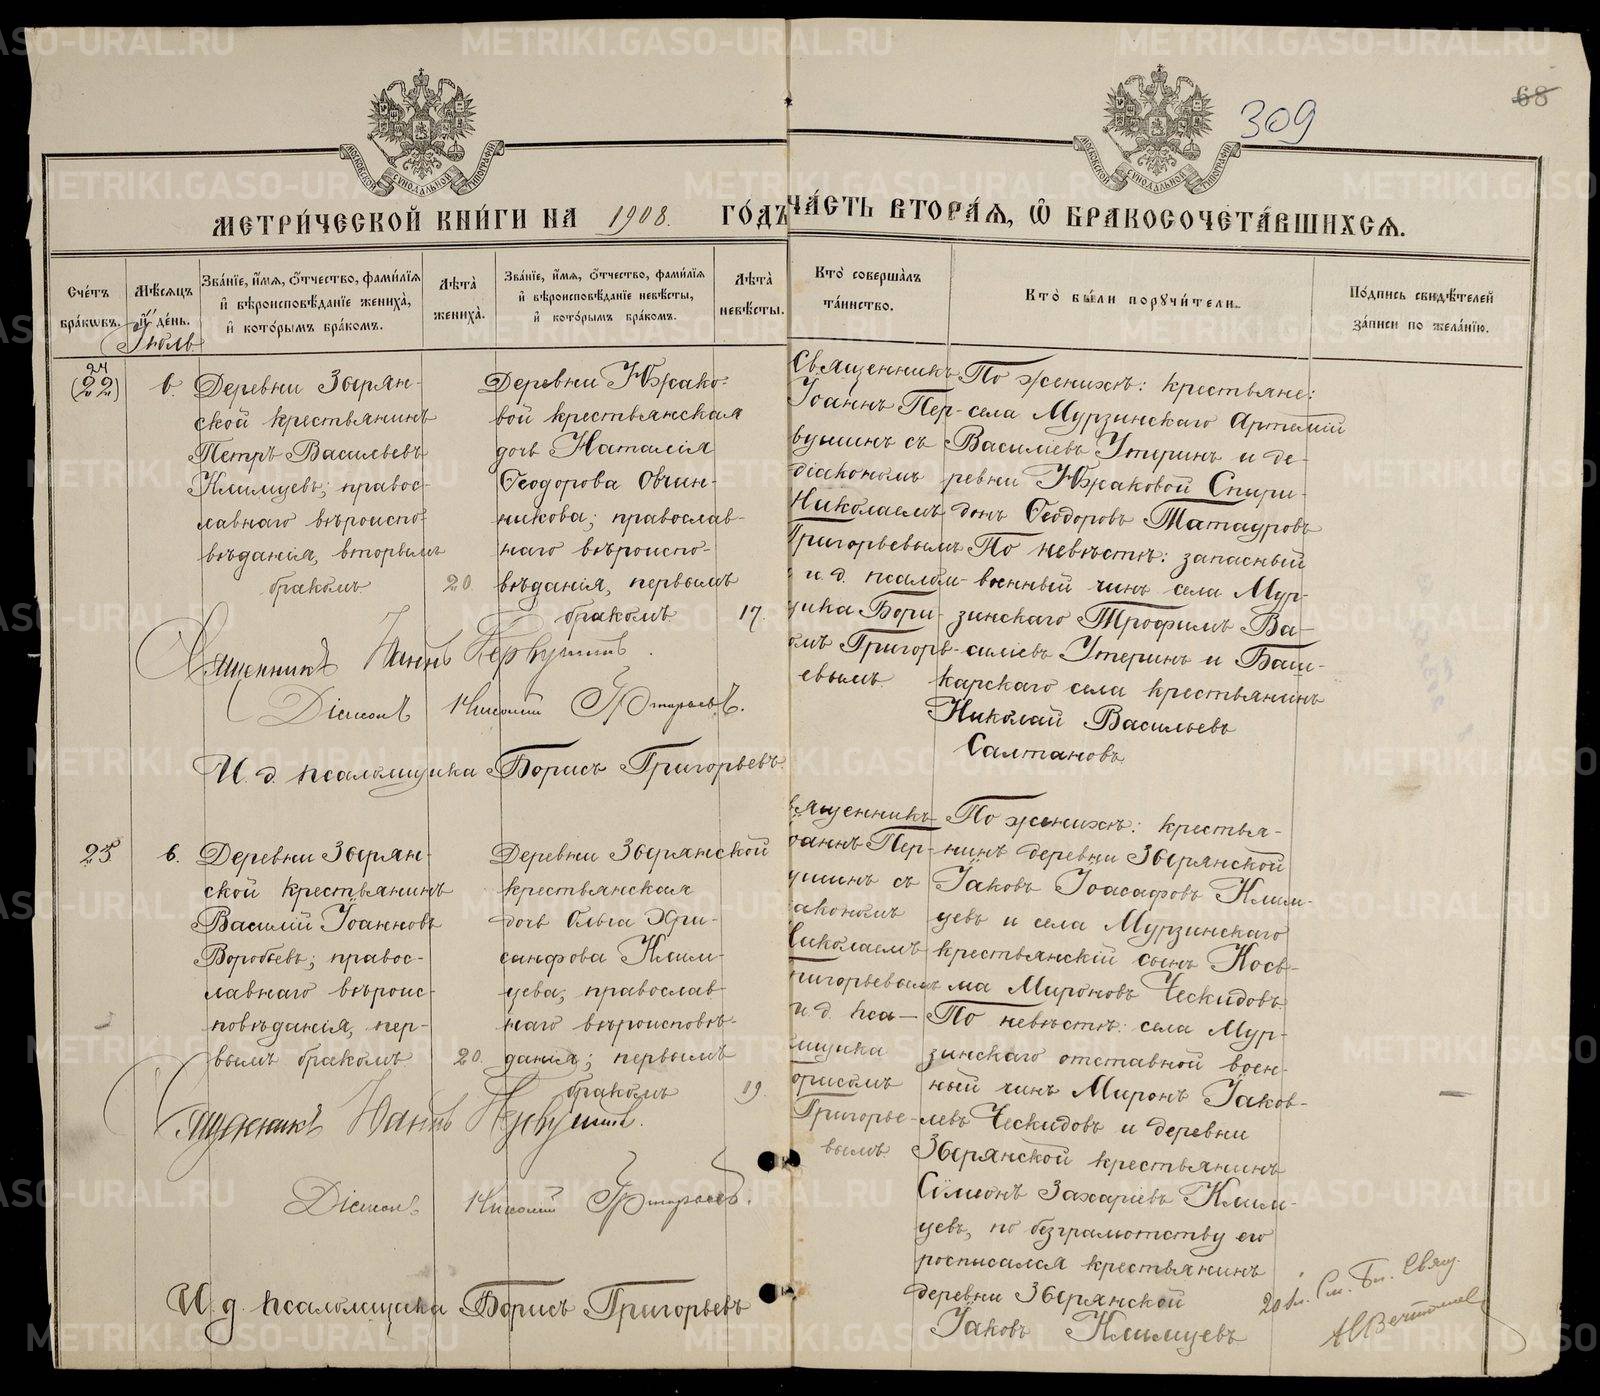 309
68
МОСКОВСКОЙ СѴНОДАЛЬНОЙ ТИПОГРАФІИ
МОСКОВСКОЙ СѴНОДАЛЬНОЙ ТИПОГРАФІИ
МЕТРИ́ЧЕСКОЙ КНИ́ГИ НА 1908. ГО́ДЪ
ЧА́СТЬ ВТОРА́Я, Ѡ БРАКОСОЧЕТА́ВШИХСЯ.
Сче́тъ бра́кѡвъ.
Мѣ́сяцъ и҆ де́нь.
Зва́нїе, и҆́мя, ѻ҆́тчество, фами́лїя и҆ вѣроисповѣ́данїе жениха̀, и҆ кото́рымъ бра́комъ.
Лѣ́та жениха̀.
Зва́нїе, и҆́мя, ѻ҆́тчество, фами́лїя и҆ вѣроисповѣ́данїе невѣ́сты, и҆ кото́рымъ бра́комъ.
Лѣ́та невѣ́сты.
Кто̀ соверша́лъ та́инство.
Кто̀ бы́ли порꙋчи́тели.
По́дпись свидѣ́телей за́писи по жела́нїю.
Іюль
24
(22)
6.
Деревни Зырян-
ской крестьянинъ
Петръ Васильевъ
Климцевъ; правос-
лавнаго вѣроиспо-
вѣданія, вторымъ
бракомъ
20
Деревни Южако-
вой крестьянская
дочь Наталія
Ѳеодорова Овчин-
никова; православ-
наго вѣроиспо-
вѣданія, первымъ
бракомъ
17.
Священникъ
Іоаннъ Пер-
вушинъ съ
діакономъ
Николаемъ
Григорьевымъ
и. д. псалом-
щика Бори-
омъ Григорь-
евымъ.
По женихѣ: крестьяне:
села Мурзинскаго Артемій
Васильевъ Утеринъ и де-
ревни Южаковой Спири-
донъ Ѳеодоровъ Татауровъ
По невѣстѣ: запасный
военный чинъ села Мур-
зинскаго Трофимъ Ва-
сильевъ Утеринъ и Баш-
карскаго села крестьянинъ
Николай Васильевъ
Салтановъ
Священникъ Іоаннъ Первушинъ.
Діаконъ Николай Григорьевъ.
И. д. псаломщика Борисъ Григорьевъ.
25
6.
Деревни Зырян-
ской крестьянинъ
Василій Іоанновъ
Воробьевъ; правос-
лавнаго вѣроис-
повѣданія, пер-
вымъ бракомъ
20.
Деревни Зырянской
крестьянская
дочь Ольга Хри-
санфова Клим-
цева, православ-
наго вѣроисповѣ-
данія; первымъ
бракомъ
19.
вященникъ
оаннъ Пер-
ушинъ съ
акономъ
иколаемъ
ригорьевымъ
и. д. пса-
мщика
орисомъ
Григорье-
вымъ.
По женихѣ: крестья-
нинъ деревни Зырянской
Іаковъ Іоасафовъ Клим-
цевъ и села Мурзинскаго
крестьянскій сынъ Кось-
ма Мироновъ Ческидовъ.
По невѣстѣ: села Мур-
зинскаго отставной воен-
ный чинъ Миронъ Іаков-
левъ Ческидовъ и деревни
Зырянской крестьянинъ
Сѵмеонъ Захаріевъ Клим-
цевъ, по безграмотству его
росписался крестьянинъ
деревни Зырянской
Іаковъ Климцевъ
Священникъ Іоаннъ Первушинъ.
Діаконъ Николай Григорьевъ.
И. д. псаломщика Борисъ Григорьевъ
См. Бл. Свящ.
METRIKI.GASO-URAL.RU